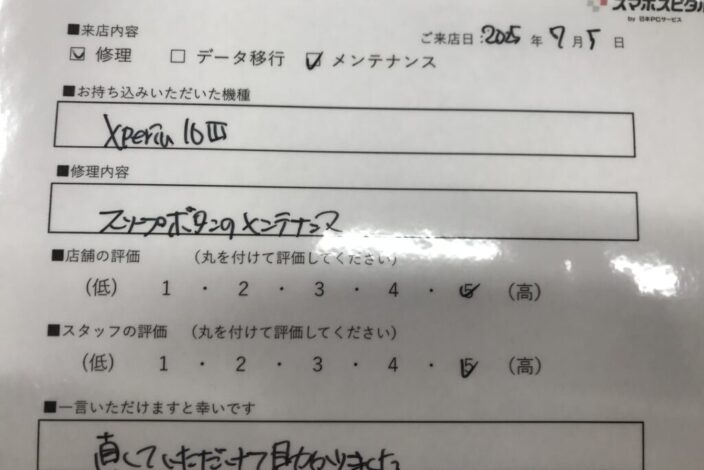 スマホスピタル
by 日本PCサービス
■来店内容
ご来店日:2025年7月5日
☑ 修理 □ データ移行 ☑ メンテナンス
■お持ち込みいただいた機種
Xperia 10 III
■修理内容
スリープボタンのメンテナンス
■店舗の評価 (丸を付けて評価してください)
(低) 1 ・ 2 ・ 3 ・ 4 ・ 5 (高)
■スタッフの評価 (丸を付けて評価してください)
(低) 1 ・ 2 ・ 3 ・ 4 ・ 5 (高)
■一言いただけますと幸いです
直していただけて助かりました。